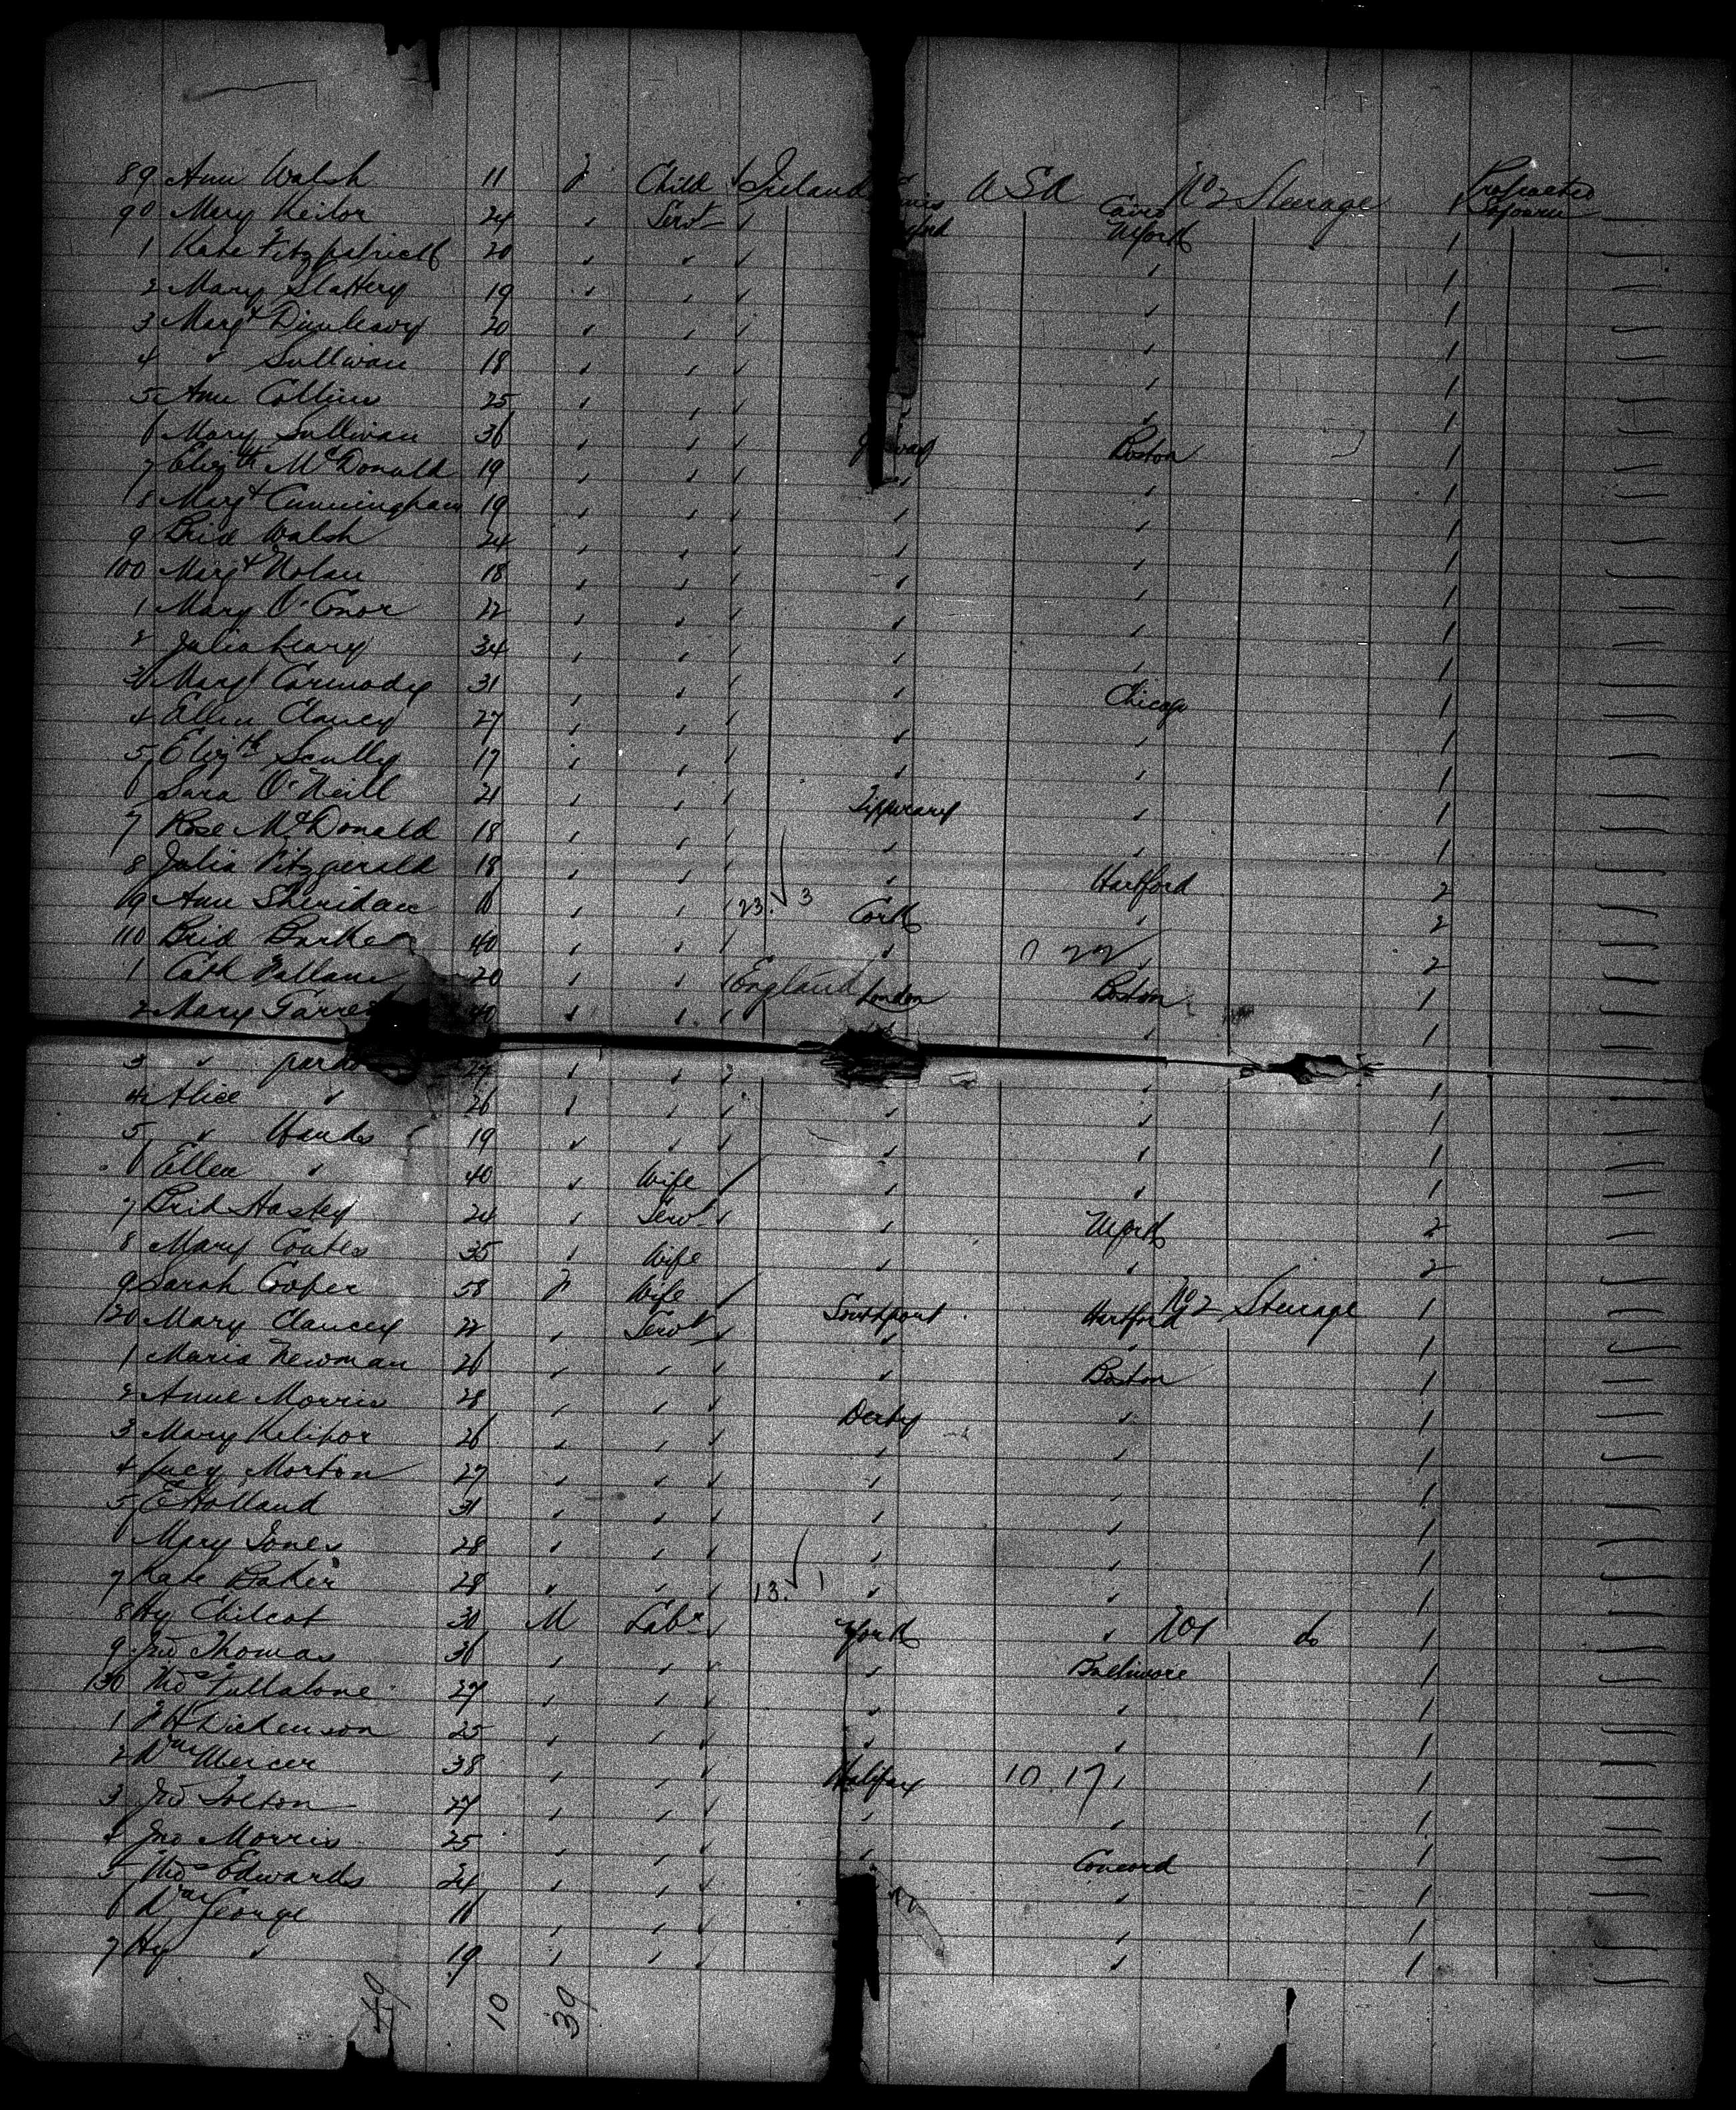 89 Ann Walsh 11 f Child Ireland U S A Cairo No 2 Steerage 1 Protracted Sojourn
90 Mary Keilor 24 " Servt " N York 1
1 Kate Fitzpatrick 20 " " " " 1
2 Mary Slattery 19 " " " " 1
3 Margt Dunleavy 20 " " " " 1
4 " Sullivan 18 " " " " 1
5 Ann Collins 25 " " " " 1
6 Mary Sullivan 36 " " " Boston 1
7 Elizth McDonald 19 " " " " " 1
8 Margt Cunningham 19 " " " " " 1
9 Brid Walsh 24 " " " " " 1
100 Margt Nolan 18 " " " " " 1
1 Mary O'Conor 22 " " " " " 1
2 Julia Leary 34 " " " " " 1
3 Margt Carmody 31 " " " " Chicago 1
4 Ellen Clancy 27 " " " " " 1
5 Elizth Scully 17 " " " " " 1
6 Sara O'Neill 21 " " " Tipperary " 1
7 Rose McDonald 18 " " " " " 1
8 Julia Fitzgerald 18 " " " " Hartford 2
109 Ann Sheridan 16 " " " 23. 3 Cork " 2
110 Brid Burke 40 " " " " 0 22 " 2
1 Cath 20 " " England London Boston 1
2 Mary 40 " " " " 1
3 " " " " " 1
4 Alice " 26 " " " " " 1
5 " Hands 19 " " " " " 1
6 Ellen " 40 " Wife " " 1
7 Brid Hasley 24 " Servt " " N York 2
8 Mary Coates 35 " Wife " " 2
9 Sarah Cooper 58 f Wife Southport Hartford No 2 Steerage 1
120 Mary Clancey 22 " Servt " " " 1
1 Maria Newman 26 " " " " Boston 1
2 Anne Morris 28 " " " Derby " 1
3 Mary 26 " " " " " 1
4 Lucy Morton 27 " " " " " 1
5 E Holland 31 " " " " " 1
6 Mary Jones 28 " " " " " 1
7 Kate Baker 28 " " " 13. 1 " " 1
8 Hy Chilcot 30 M Labr " York " No 1 do 1
9 Jno Thomas 36 " " " " Baltimore 1
130 Thos 27 " " " " " 1
1 J H Dickenson 25 " " " " " 1
2 Wm Mercer 38 " " " Halifax 10 . 17 " 1
3 Jno Tolton 27 " " " " " 1
4 Jno Morris 25 " " " " Concord 1
5 Thos Edwards 24 " " " " 1
6 Wm George 16 " " " " 1
7 Hy " 19 " " " " 1
49 10 39